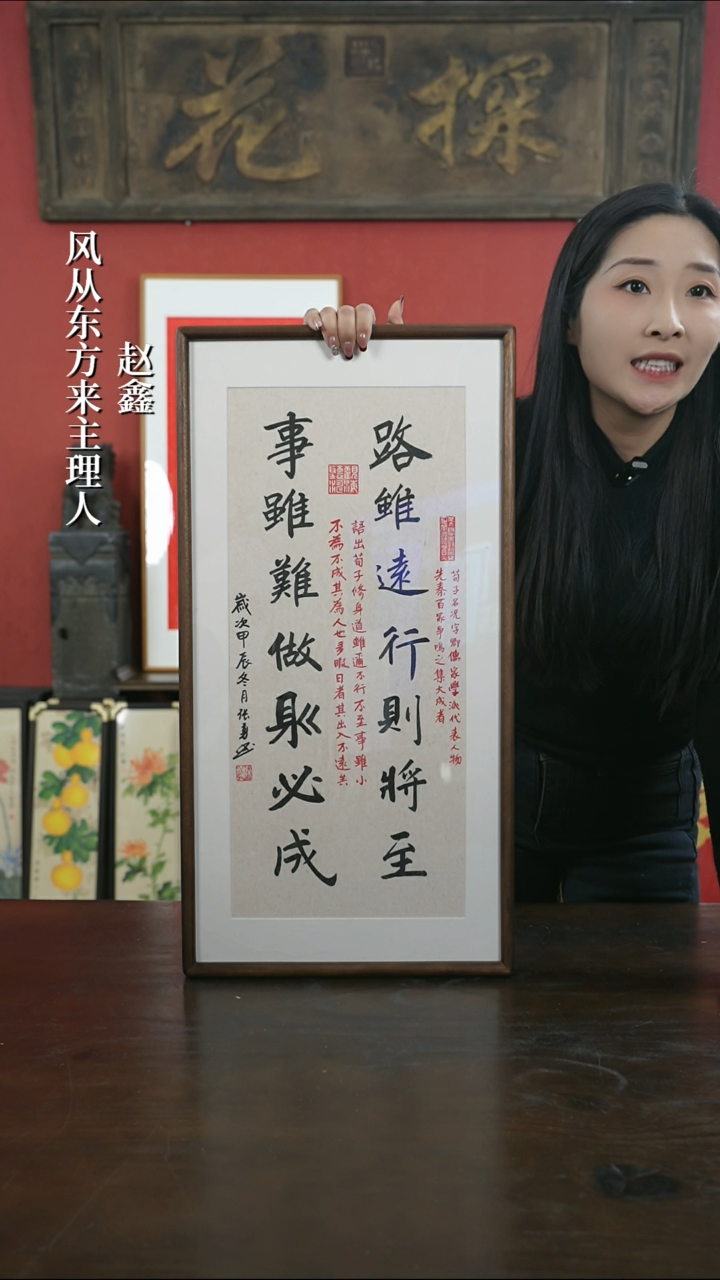 探花
赵鑫
风从东方来主理人
荀子名况字卿儒家學派代表人物
先秦百家争鳴之集大成者
路雖遠行則將至
語出荀子修身道雖邇不行不至事雖小
不為不成其為人也多暇日者其出入不遠矣
事雖難做則必成
歲次甲辰冬月張勇書